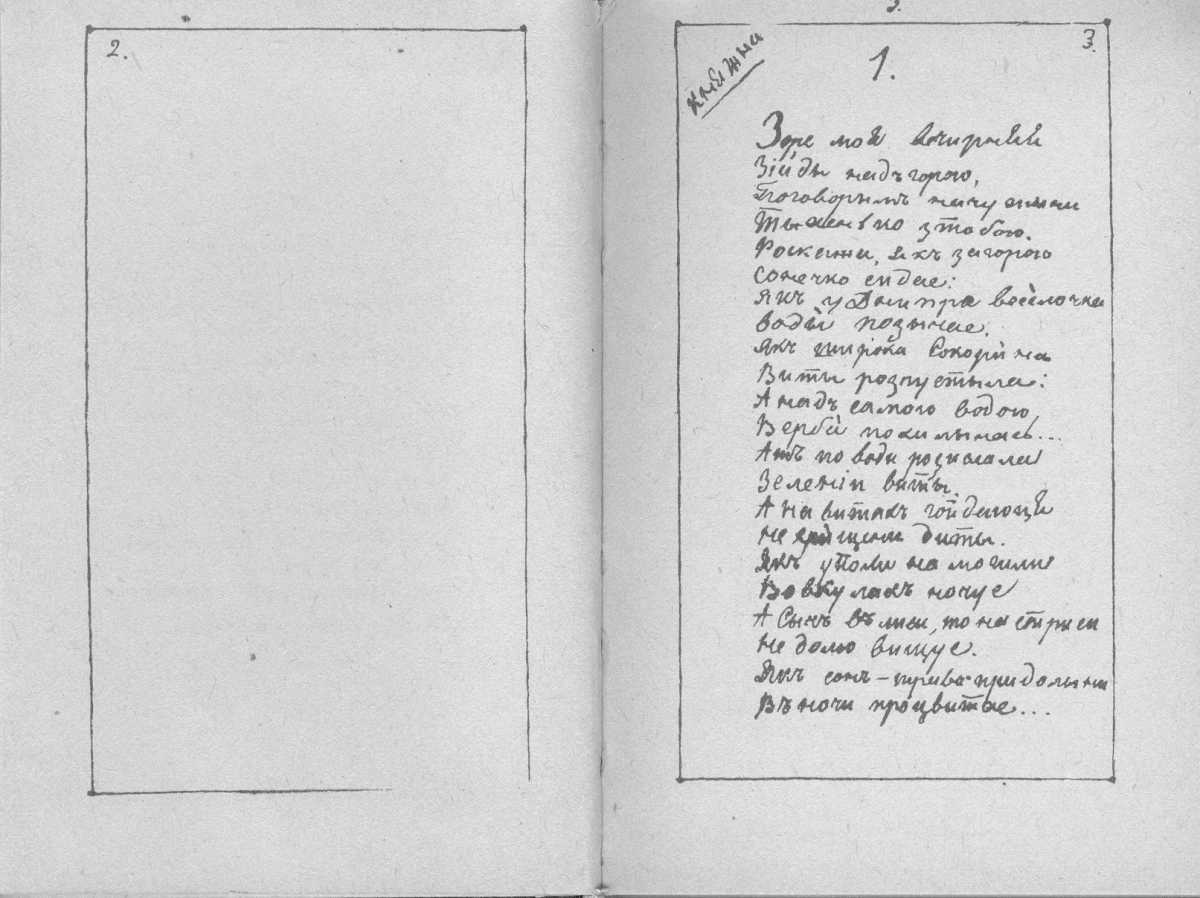 2.
3.
3.
Княжна
1.
Зоре моя вечирняя
Зійды надъ горою,
Поговорымъ
Тыхенько зтобою.
Роскажи, якъ загорою
Сонечко сидае:
Якъ уДнипра весёлочка
Воду позычае.
Якъ широка Сокорина
Виты розпустыла:
А надъ самою водою,
Верба похилылась...
Ажъ по води розіслала
Зеленіи виты,
А на витахъ гойдаюця
не хрищени диты.
Якъ уполи на могили
Вовкулакъ ночує
А Сычъ въ лиси, то на стриси
Недолю вищує.
Якъ сонъ-трава придолыни
Въночи процвитае...